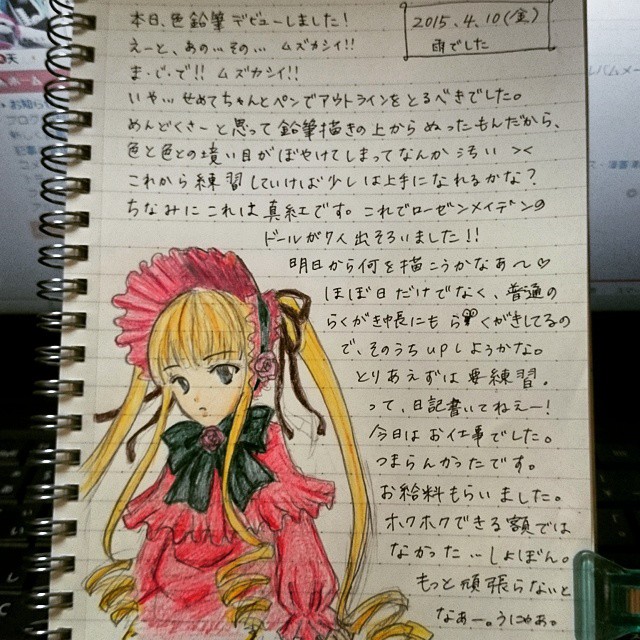 本日、色鉛筆デビューしました！
2015.4.10(金)
雨でした
えーと、あの…その… ムズカシイ!!
ま・ぢ・で!! ムズカシイ!!
いや…せめてちゃんとペンでアウトラインをとるべきでした。
めんどくさーと思って鉛筆描きの上からぬったもんだから、
色と色との境い目がぼやけてしまってなんか汚い ><
これから練習していけば少しは上手になれるかな？
ちなみにこれは真紅です。これでローゼンメイデンの
ドールが7人出そろいました!!
明日から何を描こうかなぁ〜♡
ほぼ日だけでなく、普通の
らくがき帳にもらくがきしてるの
で、そのうちupしようかな。
とりあえずは要練習。
って、日記書いてねえー！
今日はお仕事でした。
つまらんかったです。
お給料もらいました。
ホクホクできる額では
なかった…しょぼん。
もっと頑張らないと
なぁー。うにゃぁ。